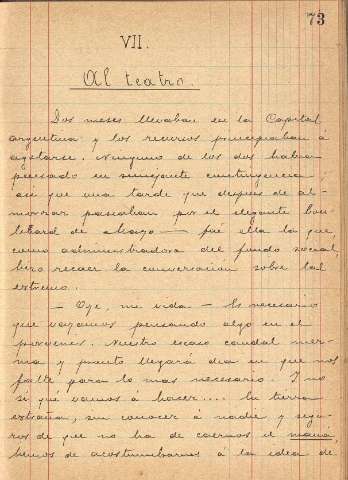 73
VII.
Al teatro.
Dos meses llevaban en la Capital
argentina y los recursos principiaban á
agotarse. Ninguno de los dos había
pensado en semejante contingencia,
así que una tarde que despues de al-
morzar paseaban por el elegante bou-
lebard de Mayo — fué ella la que
como administradora del fondo social,
hizo recaer la conversación sobre tal
extremo.
— Oye, mi vida — Es necesario
que vayamos pensando algo en el
porvenir. Nuestro escaso caudal mer-
ma y pronto llegará dia en que nos
falte para lo mas necesario. Y no
sé qué vamos á hacer.... En tierra
extraña, sin conocer á nadie y segu-
ros de que no ha de caernos el maná,
hemos de acostumbrarnos á la idea de